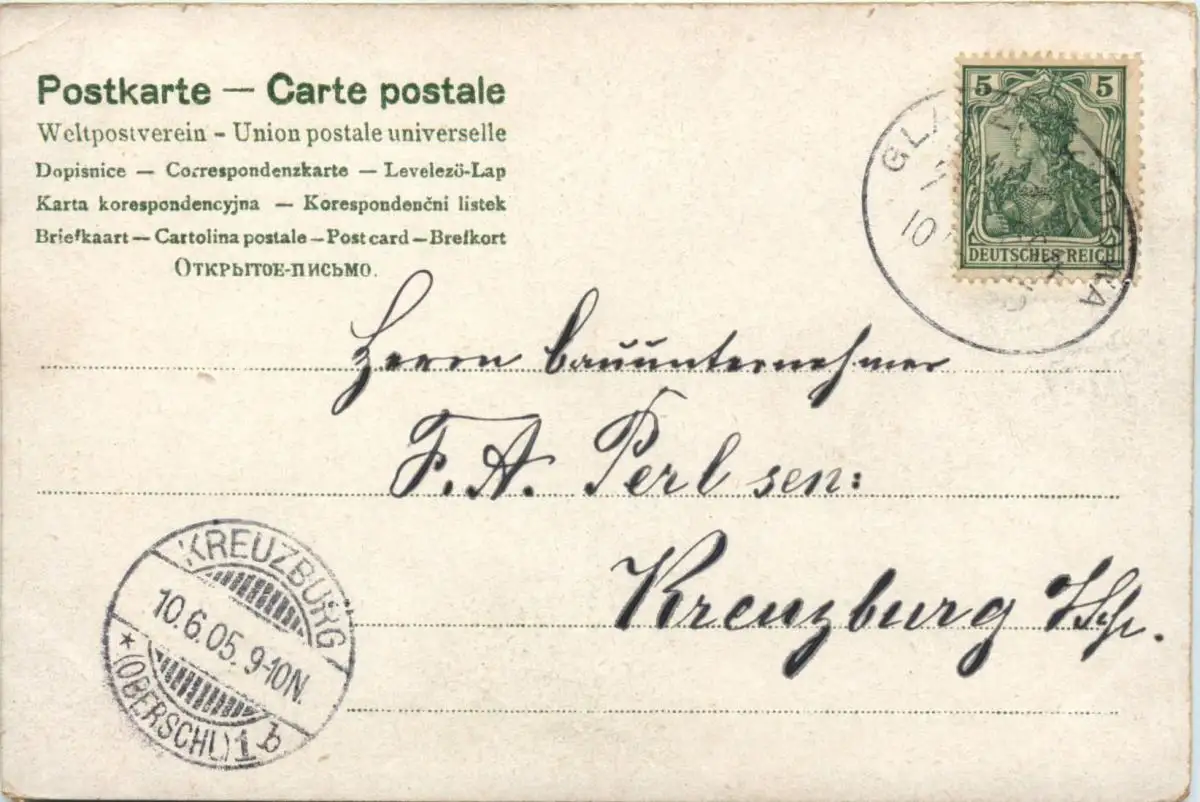 Postkarte — Carte postale
Weltpostverein - Union postale universelle
Dopisnice — Correspondenzkarte — Levelező-Lap
Karta korespondencyjna — Korespondenčni listek
Briefkaart — Cartolina postale — Post card — Brefkort
Открытое-письмо.
5 5
DEUTSCHES REICH
10
Herrn Bauunternehmer
F. A. Perl sen:
Kreuzburg
KREUZBURG
10.6.05. 9-10N.
* (OBERSCHL.) 1 b